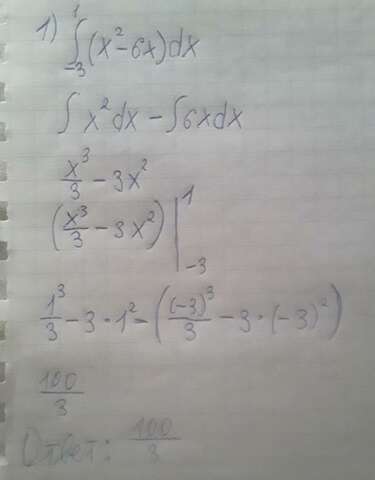 1) ∫₋₃¹ (x²-6x)dx
∫ x²dx - ∫6xdx
x³/3 - 3x²
(x³/3 - 3x²) |₋₃¹
1³/3 - 3 · 1² - ((-3)³/3 - 3 · (-3)²)
100/3
Ответ: 100/3